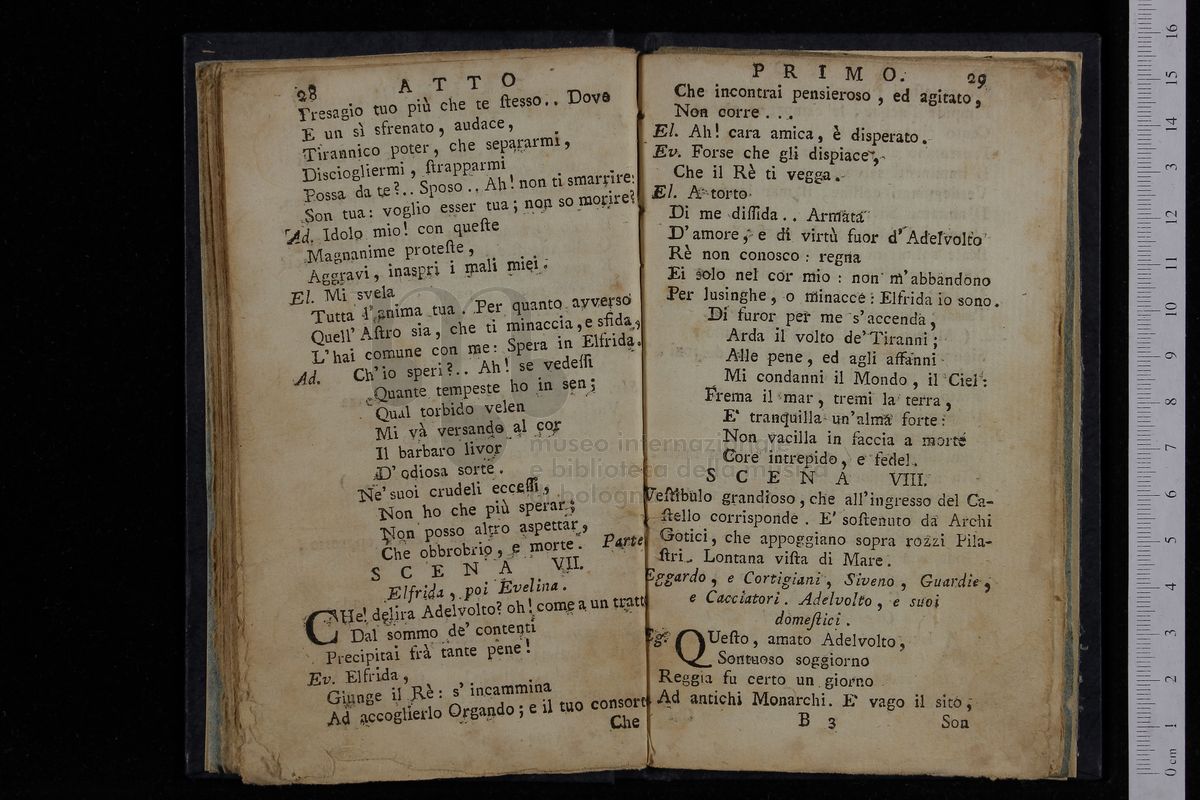 28 ATTO
Presagio tuo più che te ſtesso.. Dove
E un sì sfrenato, audace,
Tirannico poter, che separarmi,
Disciogliermi, ſtrapparmi
Possa da te?.. Sposo.. Ah! non ti smarrire:
Son tua: voglio esser tua; non so morire?
Ad. Idolo mio! con queſte
Magnanime proteſte,
Aggravi, inaspri i mali miei.
El. Mi svela
Tutta l'anima tua. Per quanto avverso
Quell' Aſtro sia, che ti minaccia, e sfida,
L'hai comune con me: Spera in Elfrida.
Ad. Ch'io speri?.. Ah! se vedeſſi
Quante tempeste ho in sen;
Qual torbido velen
Mi và versando al cor
Il barbaro livor
D'odiosa sorte.
Ne' suoi crudeli ecceſſi,
Non ho che più sperar;
Non posso altro aspettar,
Che obbrobrio, e morte. Parte
SCENA VII.
Elfrida, poi Evelina.
CHe! delira Adelvolto? oh! come a un tratt
Dal sommo de' contenti
Precipitai frà tante pene!
Ev. Elfrida,
Giunge il Rè: s'incammina
Ad accoglierlo Orgando; e il tuo consort
Che
PRIMO. 29
Che incontrai pensieroso, ed agitato,
Non corre...
El. Ah! cara amica, è disperato.
Ev. Forse che gli dispiace,
Che il Rè ti vegga.
El. A torto
Di me diſſida.. Armata
D'amore, e di virtù fuor d'Adelvolto
Rè non conosco: regna
Ei solo nel cor mio: non m'abbandono
Per lusinghe, o minacce: Elfrida io sono.
Di furor per me s'accenda,
Arda il volto de' Tiranni;
Alle pene, ed agli affanni
Mi condanni il Mondo, il Ciel:
Frema il mar, tremi la terra,
E' tranquilla un'alma forte:
Non vacilla in faccia a morte
Core intrepido, e fedel.
SCENA VIII.
Veſtibulo grandioso, che all'ingresso del Ca-
ſtello corrisponde. E' soſtenuto da Archi
Gotici, che appoggiano sopra rozzi Pila-
ſtri. Lontana viſta di Mare.
Eggardo, e Cortigiani, Siveno, Guardie,
e Cacciatori. Adelvolto, e suoi
domeſtici.
Eg. QUeſto, amato Adelvolto,
Sontuoso soggiorno
Reggia fu certo un giorno
Ad antichi Monarchi. E' vago il sito,
B 3 Son
museo internazionale
e biblioteca della musica
di bologna
0 cm 1 2 3 4 5 6 7 8 9 10 11 12 13 14 15 16